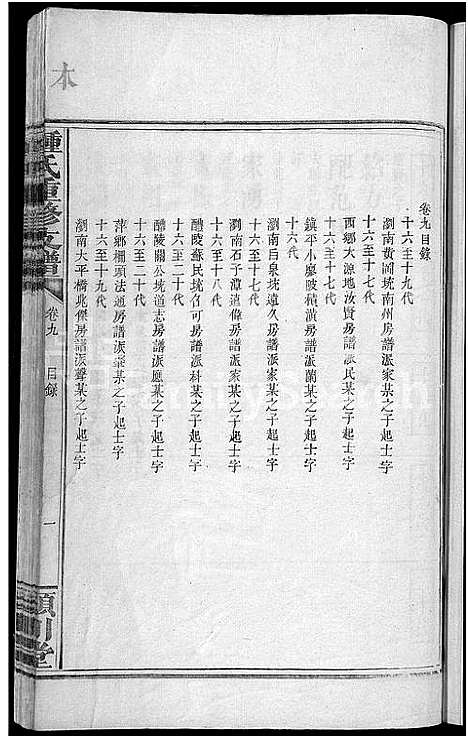 卷九目錄
十六至十九代
瀏南黄岡坑南州房譜派家某之子起士字
十六至十七代
西鄉大源地汝賢房譜派民某之子起士字
十六至十七代
鎮平小廖陂積潢房譜派蘭某之子起士字
十六代
瀏南白泉坑遠久房譜派家某之子起士字
十六至十七代
瀏南石子潭道偉房譜派家某之子起士字
十六至十八代
醴陵蘇民坑召可房譜派科某之子起士字
十六至二十代
醴陵關公坑道志房譜派應某之子起士字
十六至二十代
萍鄉棚頭法通房譜派菜某之子起士字
十六至十九代
瀏南大平橋兆傑房譜派聲某之子起士字
鍾氏重修支譜
卷九 目錄
一
潁川堂
木